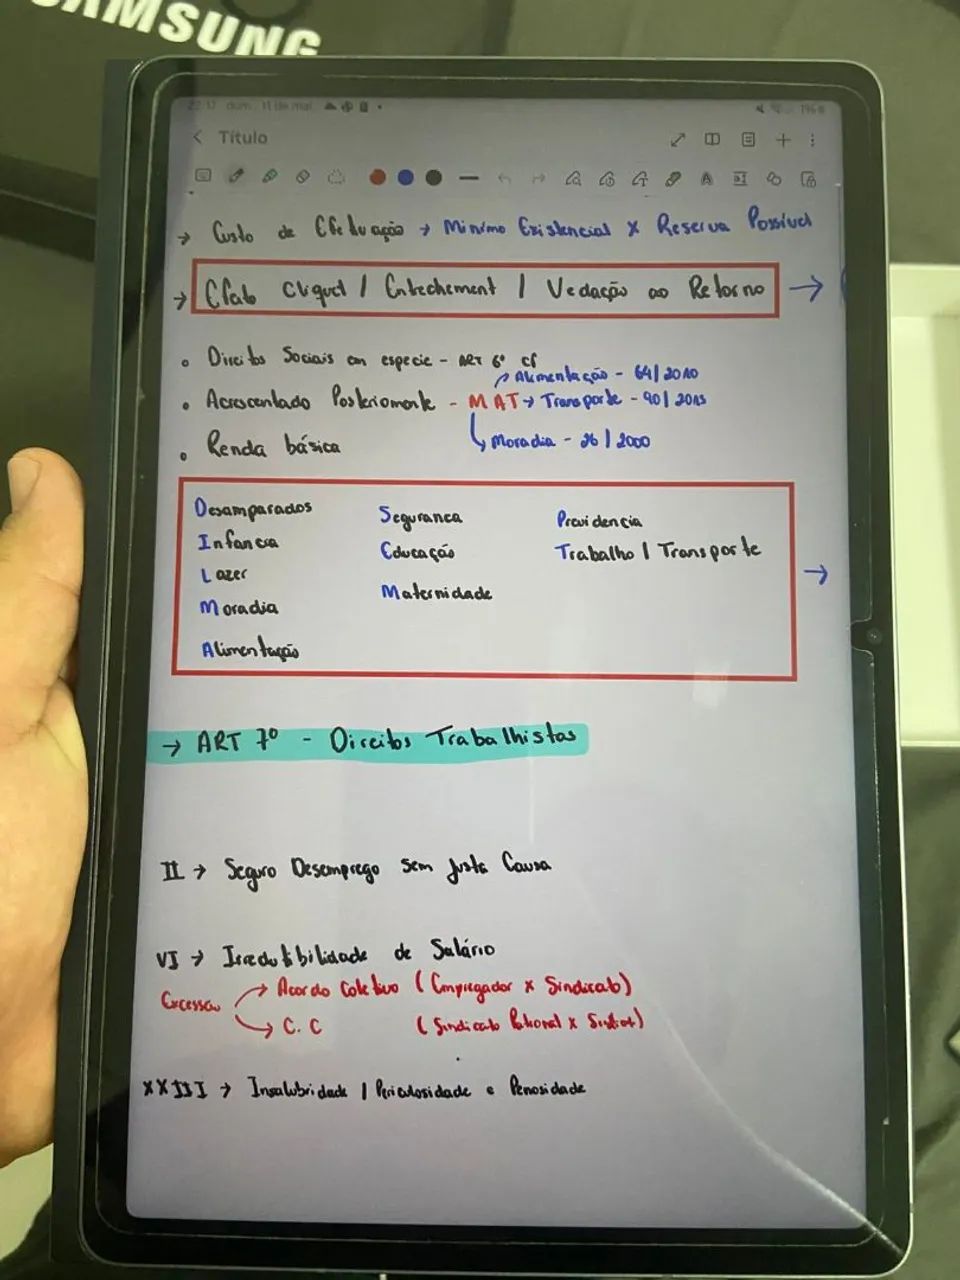 SAMSUNG
22:17 dom., 11 de mai.
Título
→ Custo de Efetuação → Mínimo Existencial X Reserva Possível
→ Efeito Cliquet / Entrechement / Vedação ao Retorno →
• Direitos Sociais em especie - ART 6º CF
Alimentação - 64/2010
• Acrescentado Posteriormente - MAT → Transporte - 90/2015
Moradia - 26/2000
• Renda básica
Desamparados Seguranca Previdencia
Infancia Educação Trabalho / Transporte
Lazer Maternidade →
Moradia
Alimentação
→ ART 7º - Direitos Trabalhistas
II → Seguro Desemprego sem justa Causa
VI → Irredutibilidade de Salário
Excessão → Acordo Coletivo (Empregador x Sindicato)
→ C.C (Sindicato Patronal x Sindicat)
XXIII → Insalubridade / Periculosidade e Penosidade